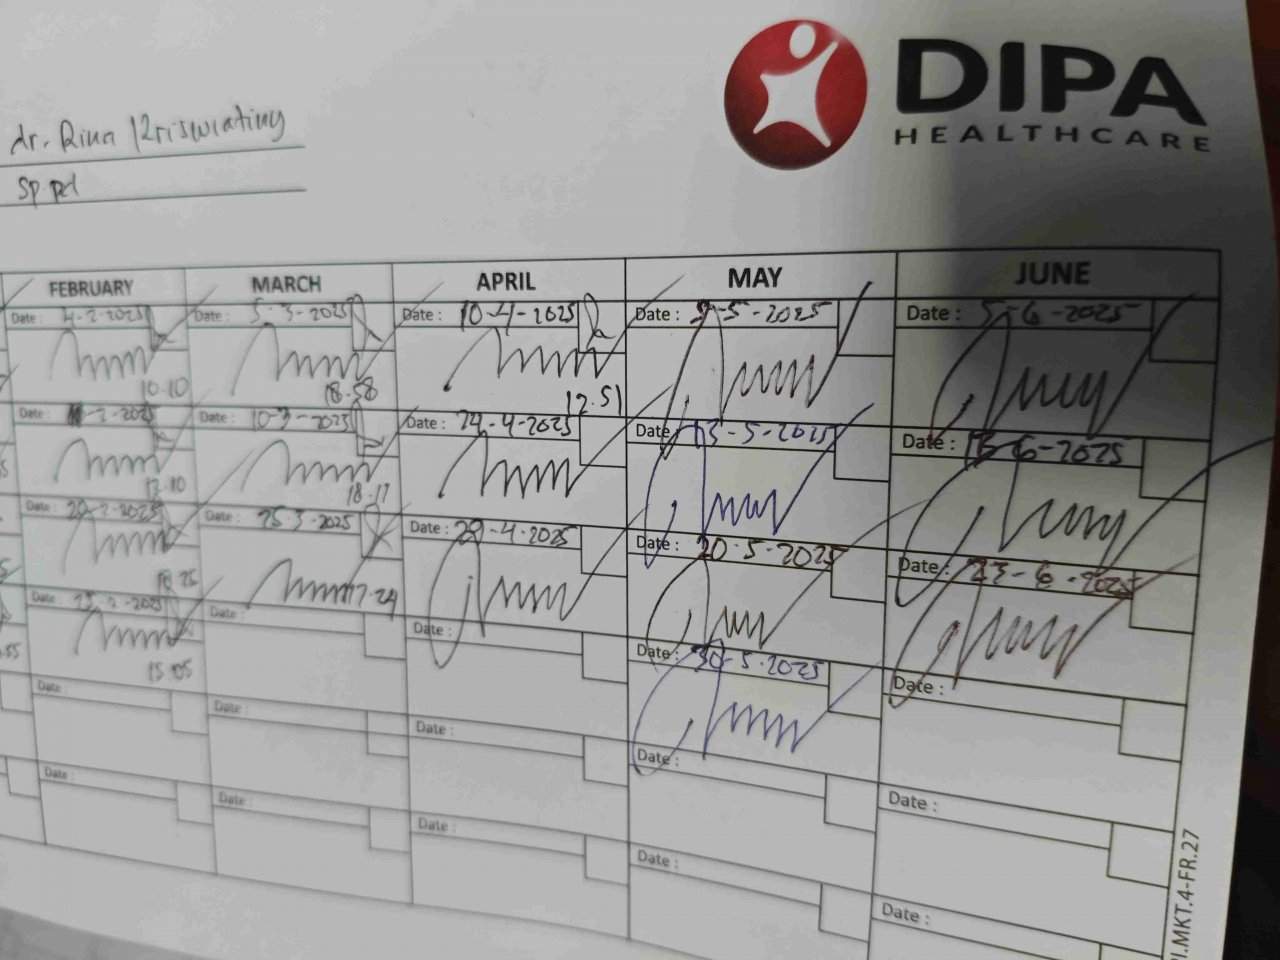 DIPA
HEALTHCARE
dr. Rina Kriswiatiny
Sp.pd
FEBRUARY MARCH APRIL MAY JUNE
Date : 4-2-2025 Date : 5-3-2025 Date : 10-4-2025 Date : 9-5-2025 Date : 5-6-2025
10.10 18.58 12.51
Date : 11-2-2025 Date : 10-3-2025 Date : 24-4-2025 Date : 13-5-2025 Date : 13-6-2025
12.10 18.17
Date : 20-2-2025 Date : 25-3-2025 Date : 29-4-2025 Date : 20-5-2025 Date : 23-6-2025
17.24
Date : Date : Date : 30-5-2025 Date :
15.05
Date : Date : Date : Date : Date :
Date : Date : Date : Date : Date :
.MKT.4-FR.27